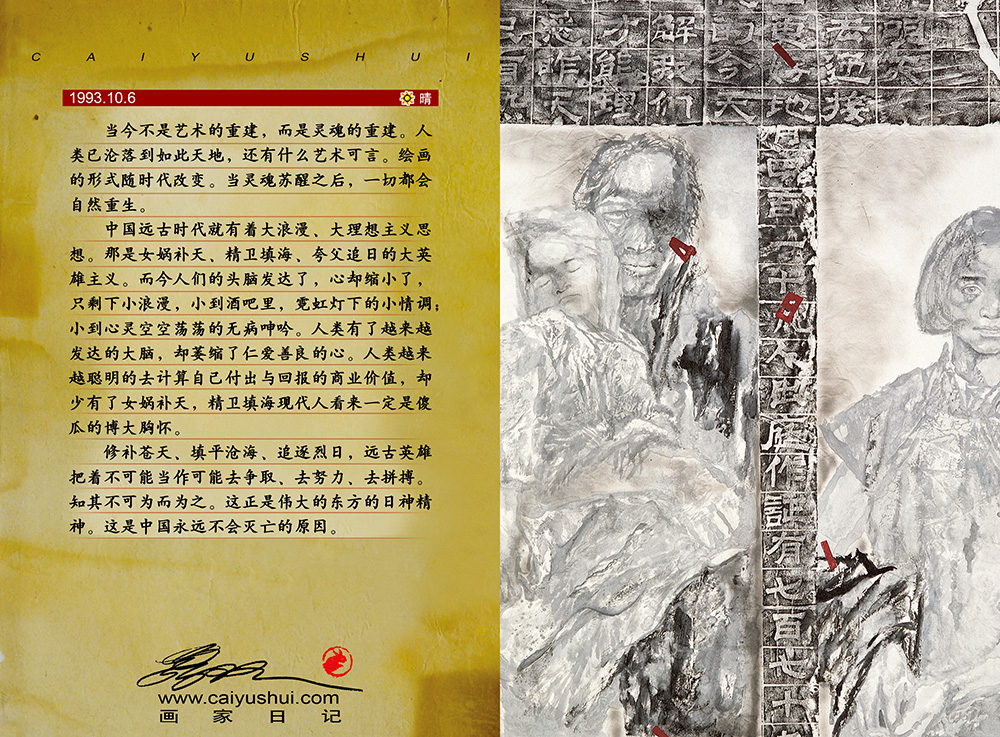 CAIYUSHUI
1993.10.6 晴
当今不是艺术的重建，而是灵魂的重建。人
类已沦落到如此天地，还有什么艺术可言。绘画
的形式随时代改变。当灵魂苏醒之后，一切都会
自然重生。
中国远古时代就有着大浪漫、大理想主义思
想。那是女娲补天、精卫填海、夸父追日的大英
雄主义。而今人们的头脑发达了，心却缩小了，
只剩下小浪漫，小到酒吧里，霓虹灯下的小情调；
小到心灵空空荡荡的无病呻吟。人类有了越来越
发达的大脑，却萎缩了仁爱善良的心。人类越来
越聪明的去计算自己付出与回报的商业价值，却
少有了女娲补天，精卫填海现代人看来一定是傻
瓜的博大胸怀。
修补苍天、填平沧海、追逐烈日，远古英雄
把着不可能当作可能去争取、去努力、去拼搏。
知其不可为而为之。这正是伟大的东方的日神精
神。这是中国永远不会灭亡的原因。
www.caiyushui.com
画家日记
解 去 明
昨 才 我 今 迎
天 能 们 天 地 接
理
百
二
十
作
記
有
七
百
七
十